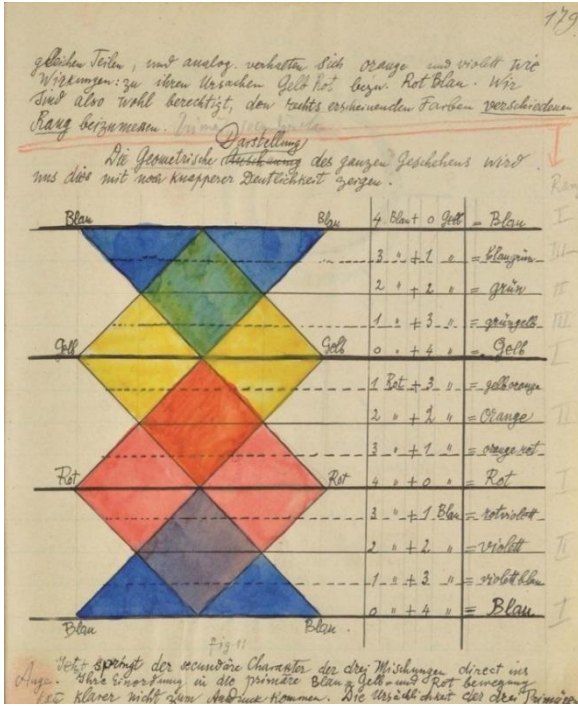 179
gleichen Teilen, und analog verhalten sich orange und violett wie
Wirkungen: zu ihren Ursachen Gelb Rot bezw. Rot Blau. Wir
sind also wohl berechtigt, den rechts erscheinenden Farben verschiedenen
Rang beizumessen.
Darstellung
Die Geometrische des ganzen Geschehens wird
uns dies mit noch knapperer Deutlichkeit zeigen.
Blau Blau 4 Blau + 0 Gelb = Blau I
3 " + 1 " = blaugrün III
2 " + 2 " = grün II
1 " + 3 " = grüngelb III
Gelb Gelb 0 " + 4 " = Gelb I
1 Rot + 3 " = gelborange
2 " + 2 " = Orange II
3 " + 1 " = orange rot
Rot Rot 4 " + 0 " = Rot I
3 " + 1 Blau = rotviolett
2 " + 2 " = violett II
1 " + 3 " = violettblau
0 " + 4 " = Blau I
Blau Blau
fig. 11
Jetzt springt der secundäre Charakter der drei Mischungen direct ins
Auge. Ihre Einordnung in die primäre Blau-Gelb- und Rot bewegung
klarer nicht zum Ausdruck kommen. Die Ursächlichkeit der drei Primären